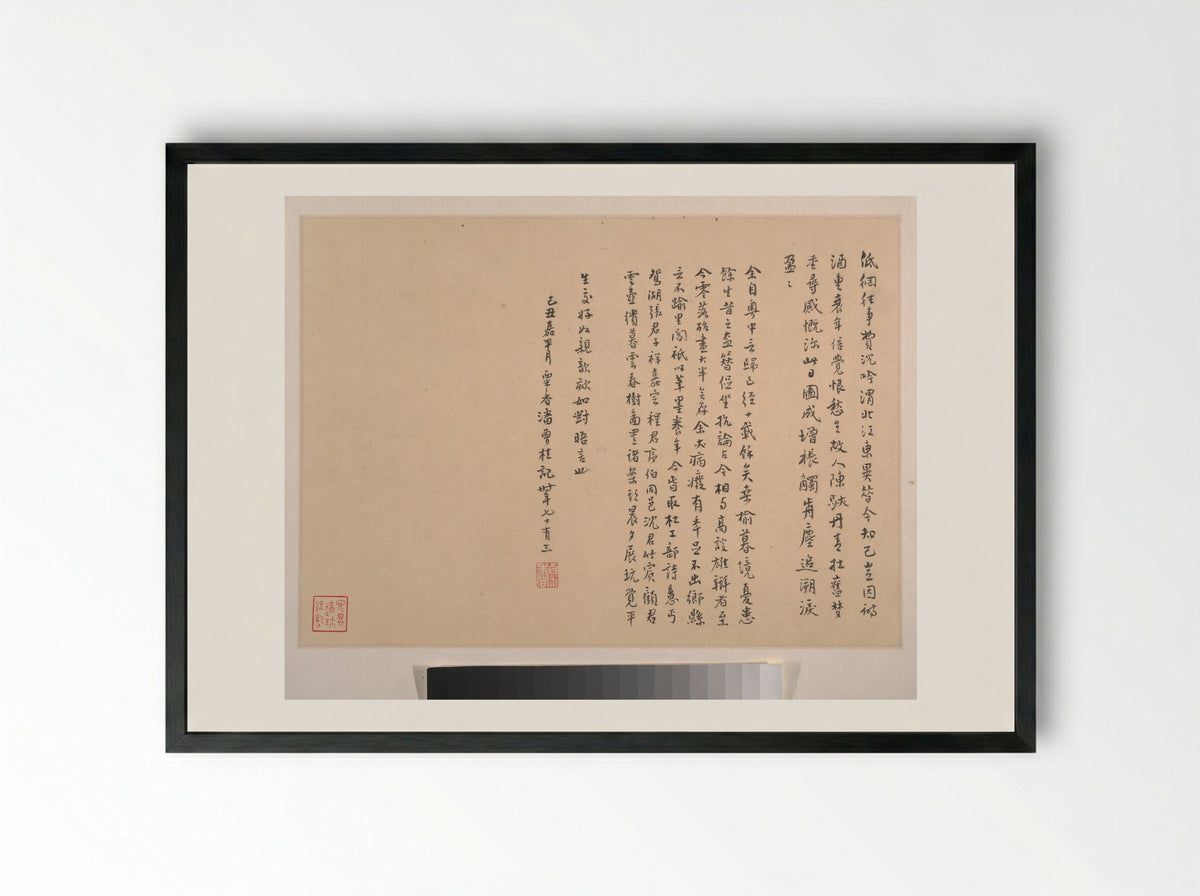 低徊往事費沉吟渭北江東異昔今知己豈因詩
酒重衰年信覺恨愁故人陳跡丹青在舊夢
重尋感慨深此日圖成增悵觸前塵追溯淚
盈〻
余自粵中言歸已經十載餘矣桑榆暮境憂患
餘生昔之盍簪促坐抗論古今相與高談雄辯者至
今零落殆盡大半無存余病癈有年足不出鄉縣
言不踰里閭祇以筆墨養年今取杜工部詩意丐
鴛湖張君子祥嘉定程君序伯同邑沈君竹賓顧君
雲壺繢暮雲春樹圖置諸案頭晨夕展玩覺平
生交好如親謦欬如對晤言也
己丑嘉平月香潘桂記時年七十有三